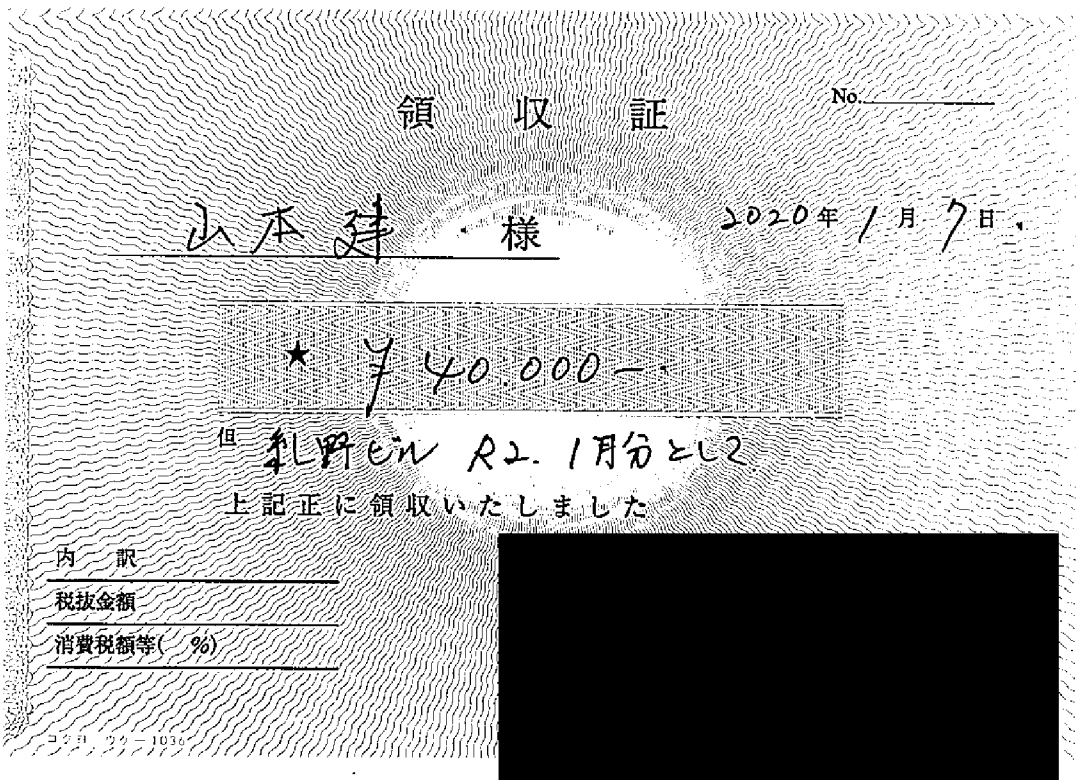 領収証
No.
山本建 様
2020年1月7日
★ ¥40.000-
但 乳野ビル R2. 1月分として
上記正に領収いたしました
内訳
税抜金額
消費税額等( %)